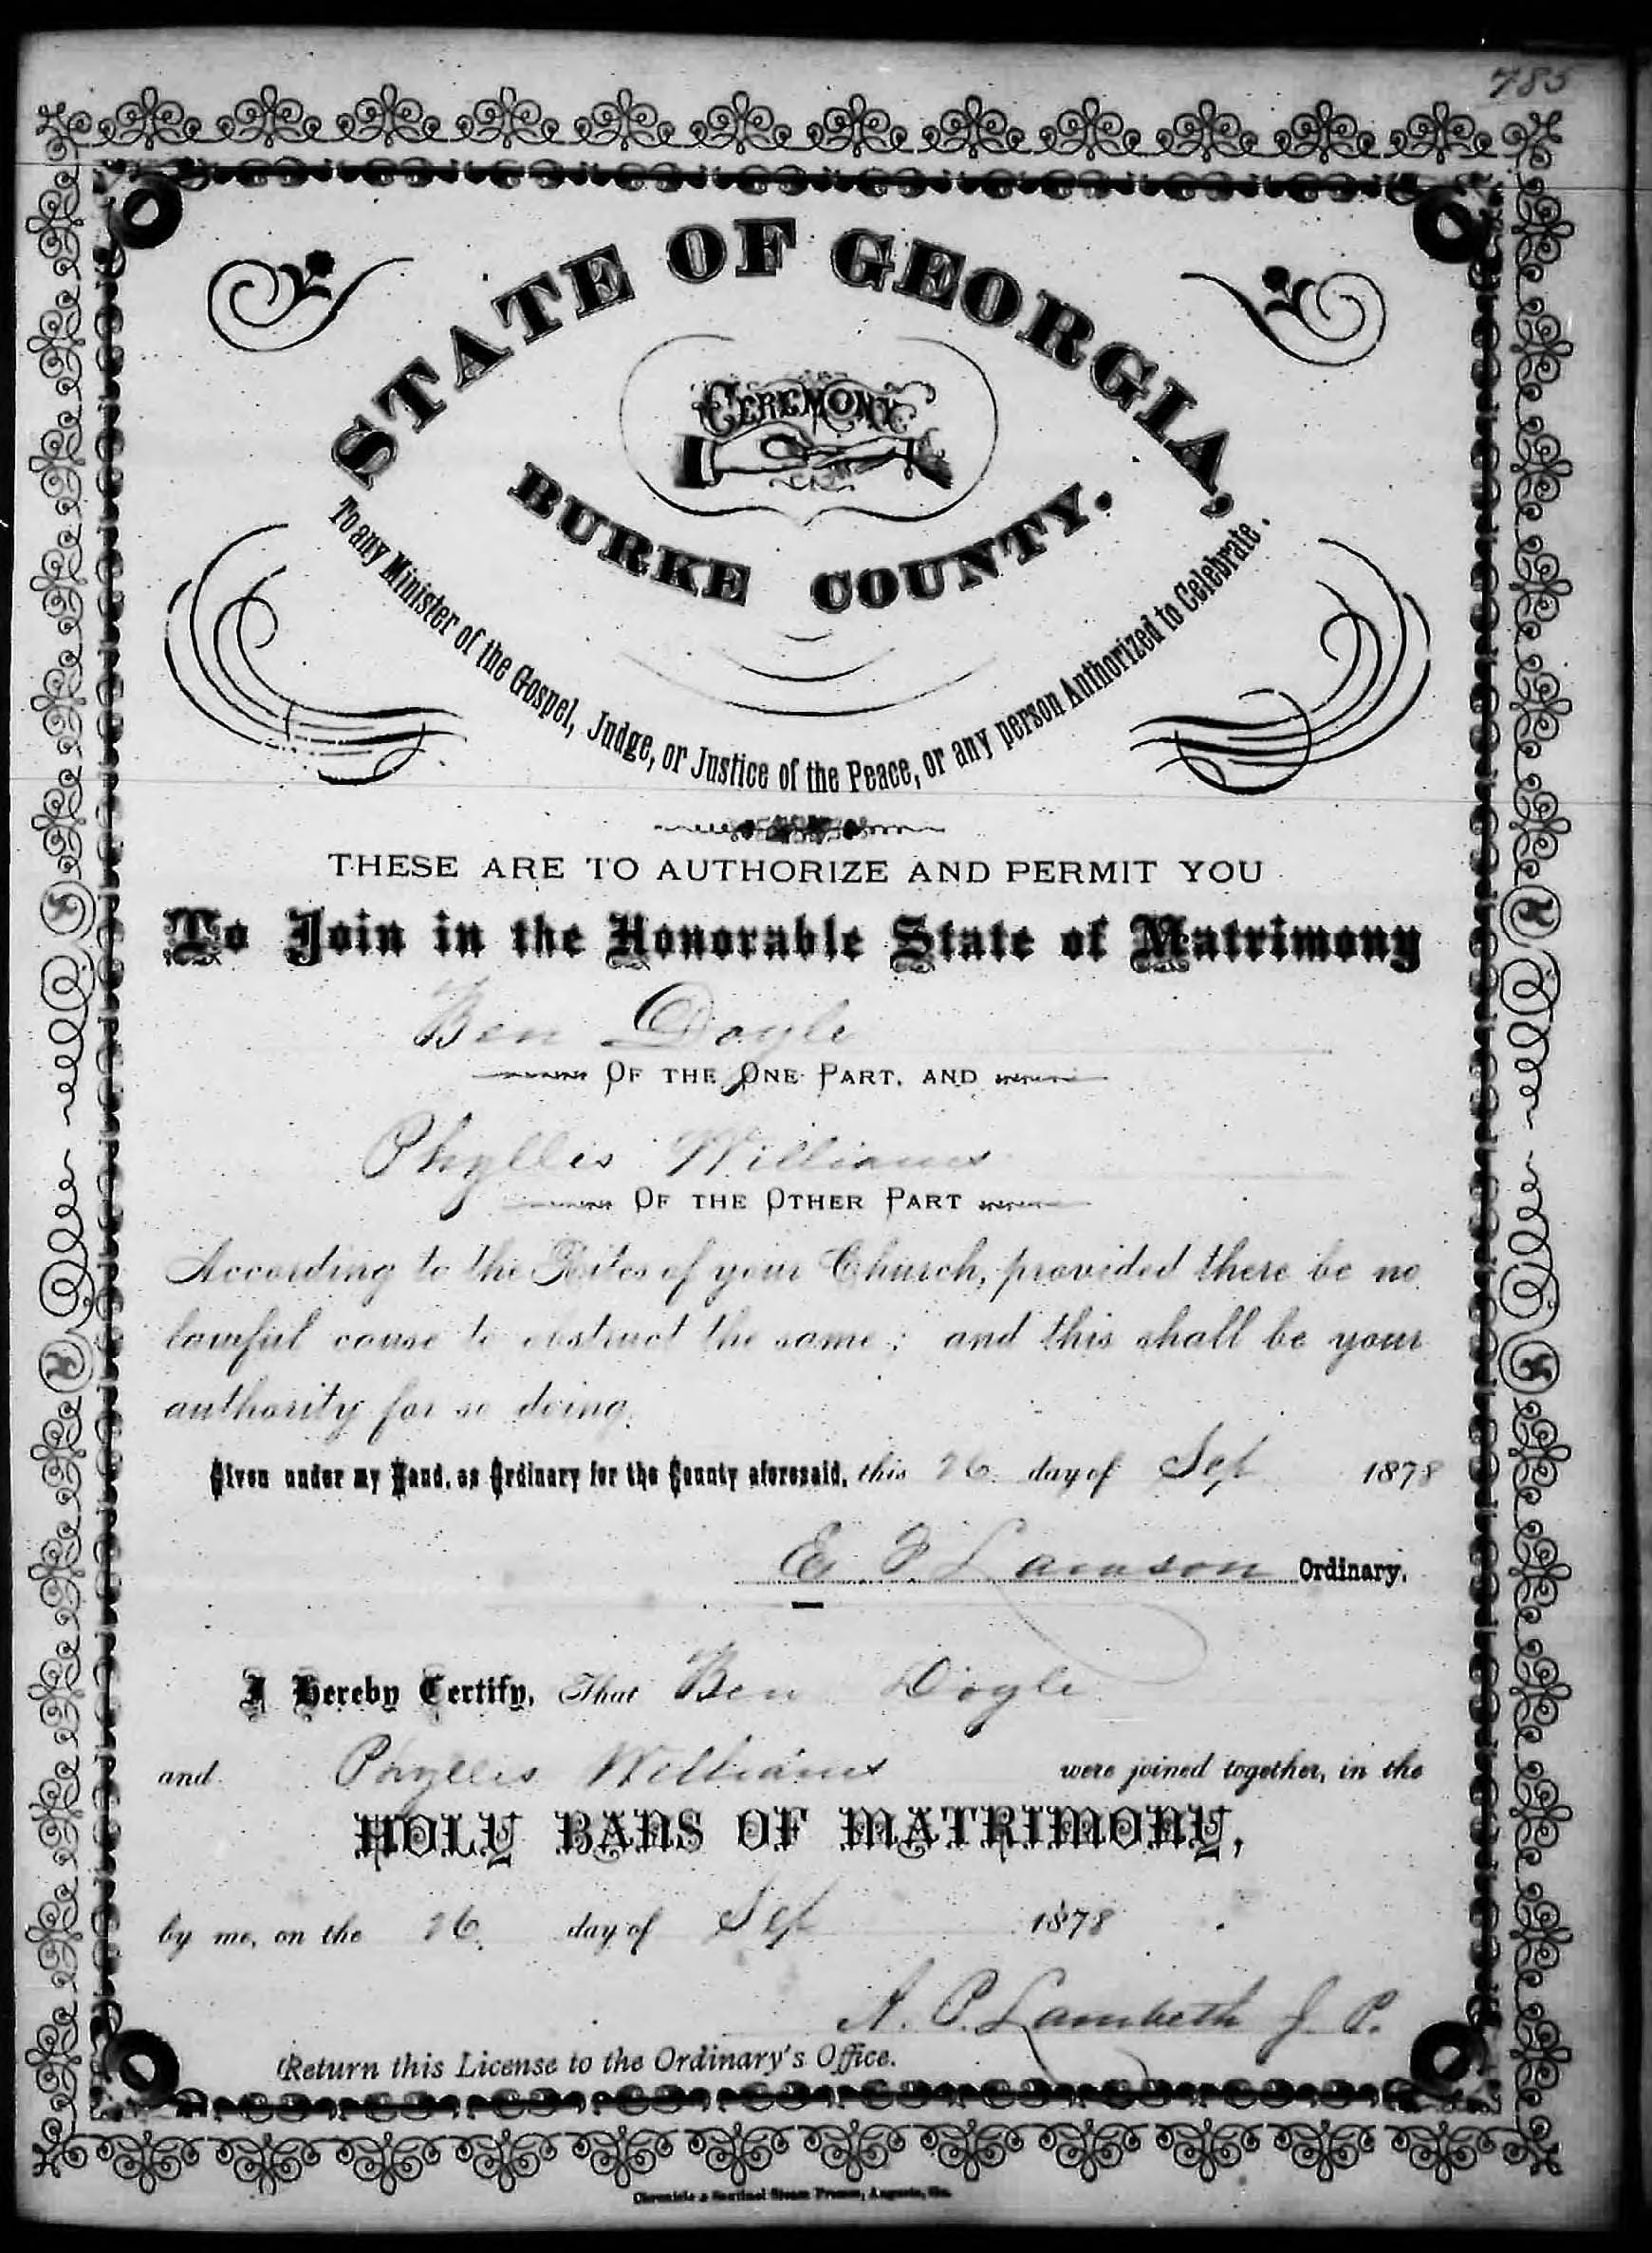 485
STATE OF GEORGIA,
CEREMONY
BURKE COUNTY.
To any Minister of the Gospel, Judge, or Justice of the Peace, or any person Authorized to Celebrate.
THESE ARE TO AUTHORIZE AND PERMIT YOU
To Join in the Honorable State of Matrimony
Ben Doyle
OF THE ONE PART, AND
Phyllis Williams
OF THE OTHER PART
According to the Rites of your Church, provided there be no
lawful cause to obstruct the same; and this shall be your
authority for so doing.
Given under my Hand, as Ordinary for the County aforesaid, this 26 day of Sep 1878
E F Lawson Ordinary.
I Hereby Certify, That Ben Doyle
and Phyllis Williams were joined together, in the
HOLY BANS OF MATRIMONY,
by me, on the 26 day of Sep 1878
A. P. Lambeth J. P.
Return this License to the Ordinary's Office.
Chronicle & Sentinel Steam Presses, Augusta, Ga.